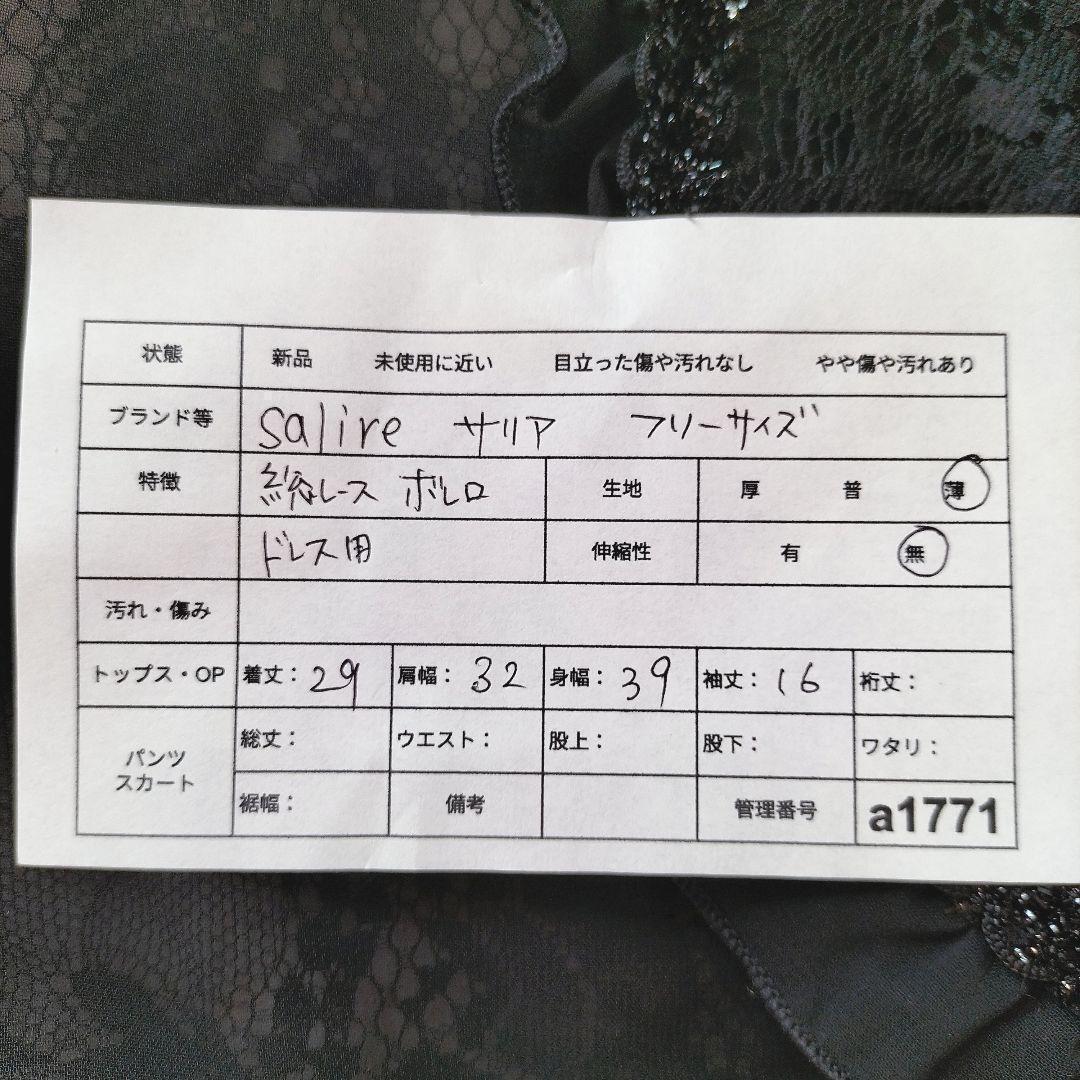 状態 新品 未使用に近い 目立った傷や汚れなし やや傷や汚れあり
ブランド等 salire サリア フリーサイズ
特徴 総レース ボレロ 生地 厚 普 薄
ドレス用 伸縮性 有 無
汚れ・傷み
トップス・OP 着丈：29 肩幅：32 身幅：39 袖丈：16 裄丈：
パンツ スカート 総丈： ウエスト： 股上： 股下： ワタリ：
裾幅： 備考 管理番号 a1771